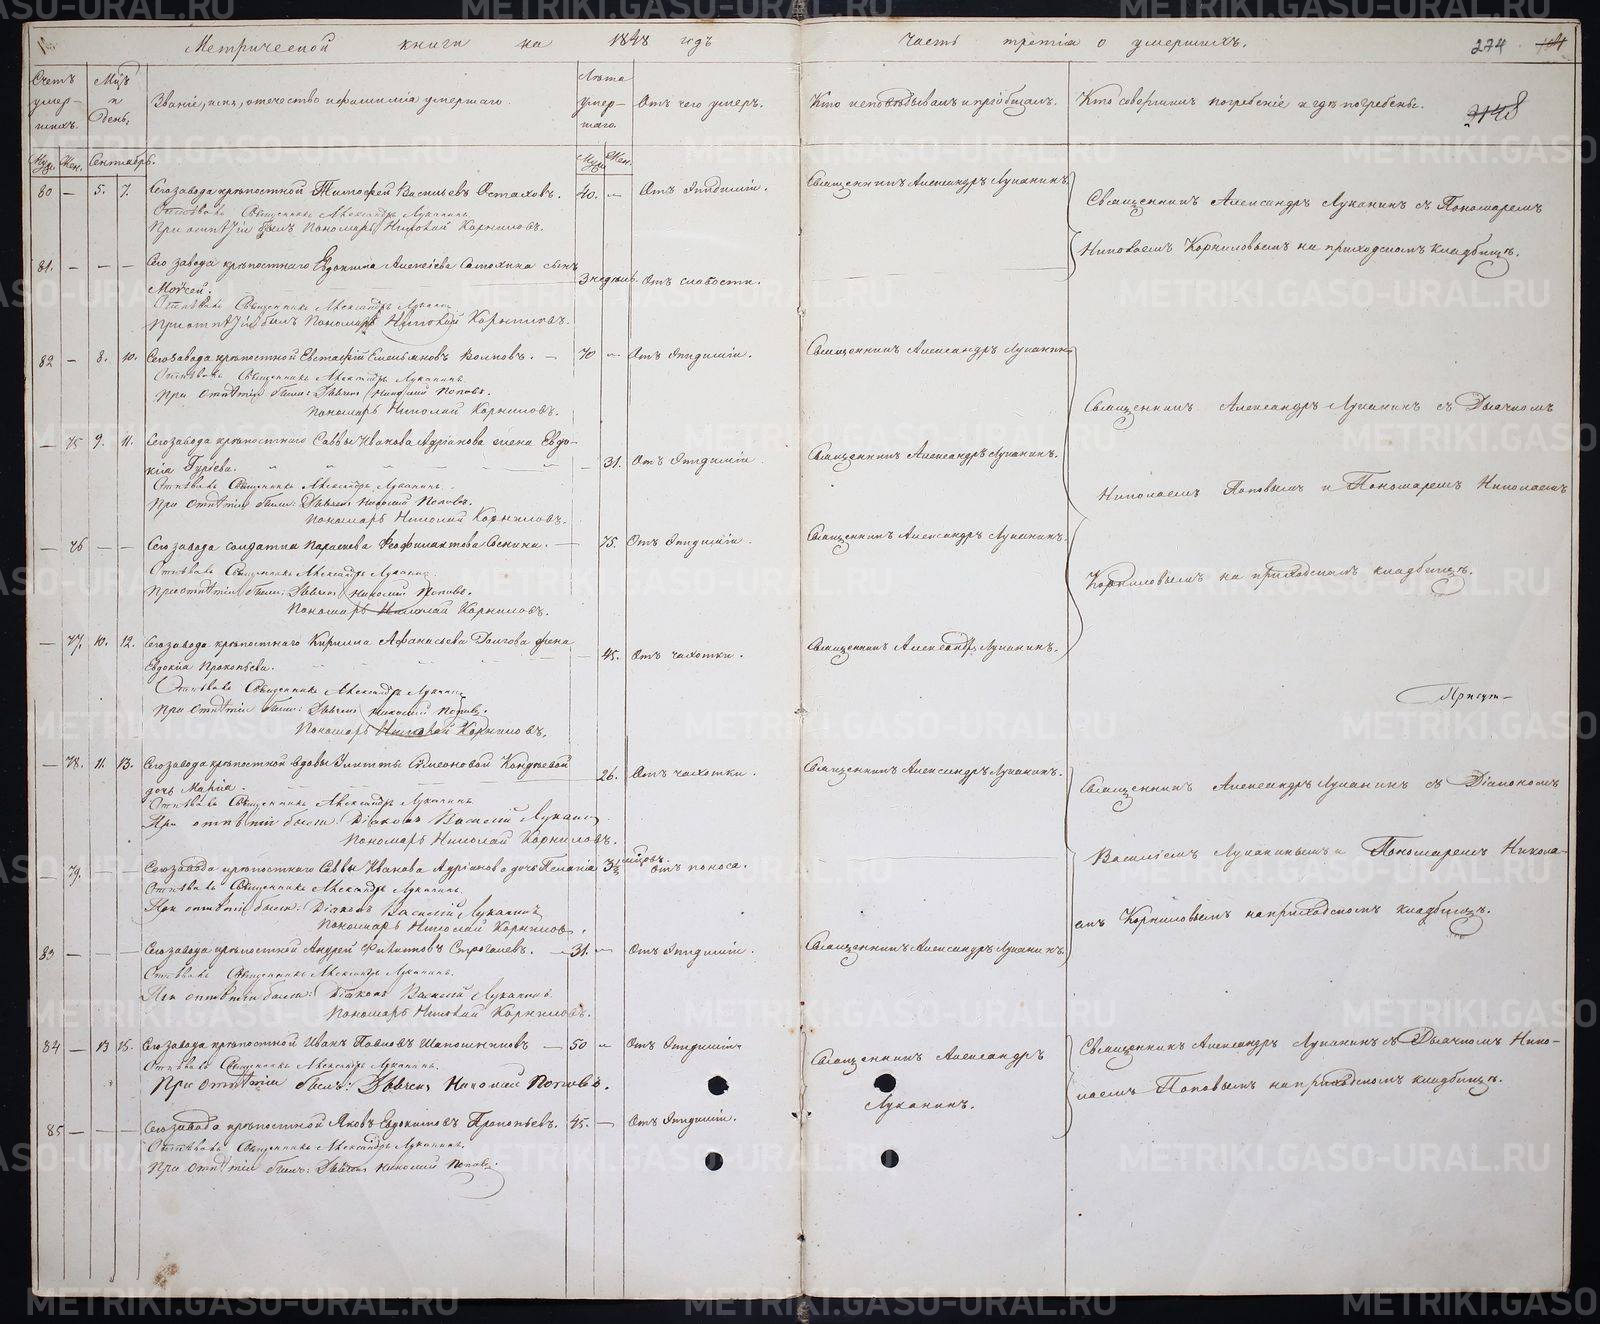 Метрической книги на 1848 годъ
часть третiя о умершихъ.
274
2148
Счетъ умер-шихъ.
Мцъ и день.
Званiе, имя, отечество и фамилiя умершаго.
Лѣта умер-шаго.
Отъ чего умеръ.
Кто исповѣдывалъ и прiобщалъ.
Кто совершилъ погребенiе и гдѣ погребены.
Муж. Жен. Сентябрь.
Муж. Жен.
80 — 5. 7. Сего завода крѣпостной Тимофей Васильевъ Остаховъ. 40. — Отъ эпидемiи. Священникъ Александръ Луканинъ.
Отпѣвалъ Священникъ Александръ Луканинъ
При отпѣтiи былъ Пономарь Николай Корниловъ.
Священникъ Александръ Луканинъ съ Пономаремъ
Николаемъ Корниловымъ на приходскомъ кладбищѣ.
81. — — — Сего завода крѣпостнаго Евдокима Алексѣева Самохина сынъ
Мойсей. 3 недѣль. Отъ слабости.
Отпѣвалъ Священникъ Александръ Луканинъ
При отпѣтiи былъ Пономарь Николай Корниловъ.
82 — 8. 10. Сего завода крѣпостной Евстафiй Емельяновъ Волковъ. — 70 — Отъ эпидемiи. Священникъ Александръ Луканинъ
Отпѣвалъ Священникъ Александръ Луканинъ
При отпѣтiи были: Дьячекъ Николай Поповъ.
Пономарь Николай Корниловъ.
Священникъ Александръ Луканинъ съ Дьячкомъ
Николаемъ Поповымъ и Пономаремъ Николаемъ
Корниловымъ на приходскомъ кладбищѣ.
— 75 9. 11. Сего завода крѣпостнаго Саввы Иванова Аурiанова жена Евдо-
кiя Гурiева. — 31. Отъ эпидемiи. Священникъ Александръ Луканинъ.
Отпѣвалъ Священникъ Александръ Луканинъ.
При отпѣтiи были: Дьячекъ Николай Поповъ.
Пономарь Николай Корниловъ.
— 76 — — Сего завода солдатка Параскева Феофилактова Соснина. — 75. Отъ эпидемiи. Священникъ Александръ Луканинъ.
Отпѣвалъ Священникъ Александръ Луканинъ.
При отпѣтiи были: Дьячекъ Николай Поповъ.
Пономарь Николай Корниловъ.
— 77. 10. 12. Сего завода крѣпостнаго Кирилла Афанасьева Долгова жена
Евдокiя Прокопьева. — 45. Отъ чахотки. Священникъ Александръ Луканинъ.
Отпѣвалъ Священникъ Александръ Луканинъ
При отпѣтiи были: Дьячекъ Николай Поповъ.
Пономарь Николай Корниловъ.
Присут-
— 78. 11. 13. Сего завода крѣпостной вдовы Улитты Симеоновой Кондьевой
дочь Марiя. 26. Отъ чахотки. Священникъ Александръ Луканинъ.
Отпѣвалъ Священникъ Александръ Луканинъ
При отпѣтiи были: Дiаконъ Василiй Луканинъ
Пономарь Николай Корниловъ.
Священникъ Александръ Луканинъ съ Дiакономъ
Василiемъ Луканинымъ и Пономаремъ Никола-
емъ Корниловымъ на приходскомъ кладбищѣ.
— 79. — — Сего завода крѣпостнаго Саввы Иванова Аурiанова дочь Пелагiя отъ поноса.
Отпѣвалъ Священникъ Александръ Луканинъ
При отпѣтiи были: Дiаконъ Василiй Луканинъ
Пономарь Николай Корниловъ.
83 — — — Сего завода крѣпостной Андрей Филиповъ Строгалевъ. — 31. — Отъ эпидемiи. Священникъ Александръ Луканинъ.
Отпѣвалъ Священникъ Александръ Луканинъ.
При отпѣтiи были: Дiаконъ Василiй Луканинъ
Пономарь Николай Корниловъ.
84 — 13 15. Сего завода крѣпостной Иванъ Павловъ Шапошниковъ — 50 — Отъ эпидемiи Священникъ Александръ
Луканинъ.
Отпѣвалъ Священникъ Александръ Луканинъ.
При отпѣтiи былъ: Дьячекъ Николай Поповъ.
Священникъ Александръ Луканинъ съ Дьячкомъ Нико-
лаемъ Поповымъ на приходскомъ кладбищѣ.
85 — — — Сего завода крѣпостной Яковъ Евдокимовъ Прокопьевъ. 45. — Отъ эпидемiи.
Отпѣвалъ Священникъ Александръ Луканинъ.
При отпѣтiи былъ: Дьячекъ Николай Поповъ.
METRIKI.GASO-URAL.RU